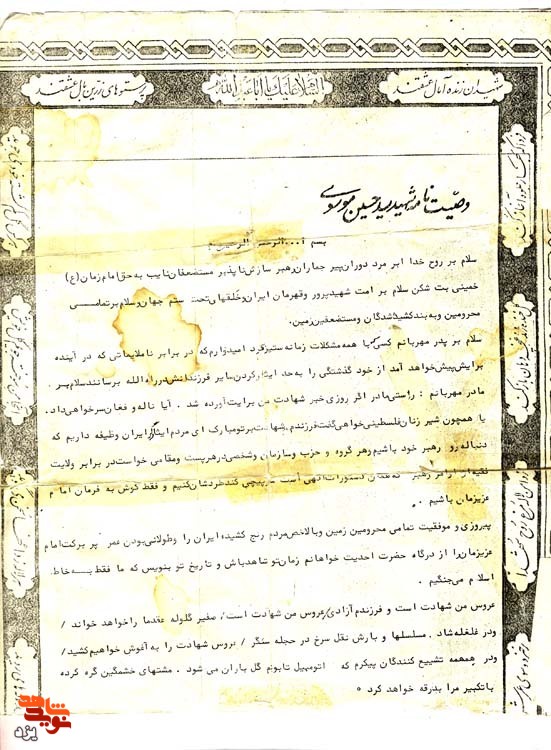 شهیدان زنده آمال عشقند
السلام علیک یا اباعبدالله
پرستوهای زرین بال عشقند
وصیت نامه شهید سید حسین موسوی
بسم ا... الرحمن الرحیم
سلام بر روح خدا ابر مرد دوران پیر جماران و رهبر سازش ناپذیر مستضعفان نایب به حق امام زمان (ع)
خمینی بت شکن سلام بر امت شهیدپرور و قهرمان ایران و خلقهای تحت ستم جهان و سلام بر تمامی
محرومین و به بند کشیده شدگان و مستضعفین زمین.
سلام بر پدر مهربانم کسی که با همه مشکلات زمانه ستیز کرد امیدوارم که در برابر ناملایماتی که در آینده
برایش پیش خواهد آمد از خود گذشتگی را به حد ایثار کردن سایر فرزندانش در راه الله برساند سلام بر
مادر مهربانم : راستی مادر اگر روزی خبر شهادت من برایت آورده شد . آیا ناله و فغان سر خواهی داد.
یا همچون شیر زنان فلسطینی خواهی گفت فرزندم شهادت بر تو مبارک ای مردم ایثارگر ایران وظیفه داریم که
دنباله رو رهبر خود باشیم و هر گروه و حزب و سازمان و شخصی در هر پست و مقامی خواست در برابر ولایت
فقیه از اوامر رهبر که همان دستورات الهی است سرپیچی کند طردشان کنیم و فقط گوش به فرمان امام
عزیزمان باشیم .
پیروزی و موفقیت تمامی محرومین زمین و بالاخص مردم رنج کشیده ایران را و طولانی بودن عمر پر برکت امام
عزیزمان را از درگاه حضرت احدیت خواهانم زمان تو شاهد باش و تاریخ تو بنویس که ما فقط به خاطر
اسلام می‌جنگیم .
عروس من شهادت است و فرزندم آزادی / عروس من شهادت است / صفیر گلوله عقد ما را خواهد خواند /
و در غلغله شاد . مسلسلها و بارش نقل سرخ در حجله سنگر / عروس شهادت را به آغوش خواهیم کشید /
و در همهمه تشییع کنندگان پیکرم که اتومبیل تابوتم گل باران می شود . مشتهای خشمگین گره کرده
با تکبیر مرا بدرقه خواهد کرد
نوید شاهد
یزد